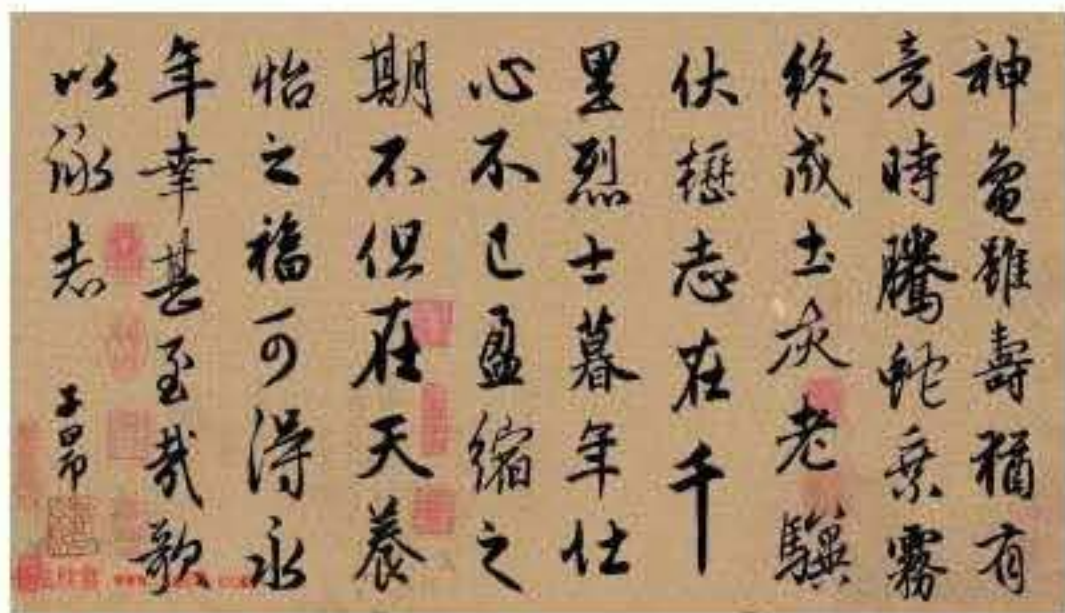 神龜雖壽猶有
竟時騰蛇乗霧
終成土灰老驥
伏櫪志在千
里烈士暮年仕
心不已盈縮之
期不但在天養
怡之福可得永
年幸甚至哉歌
以詠志
子昂